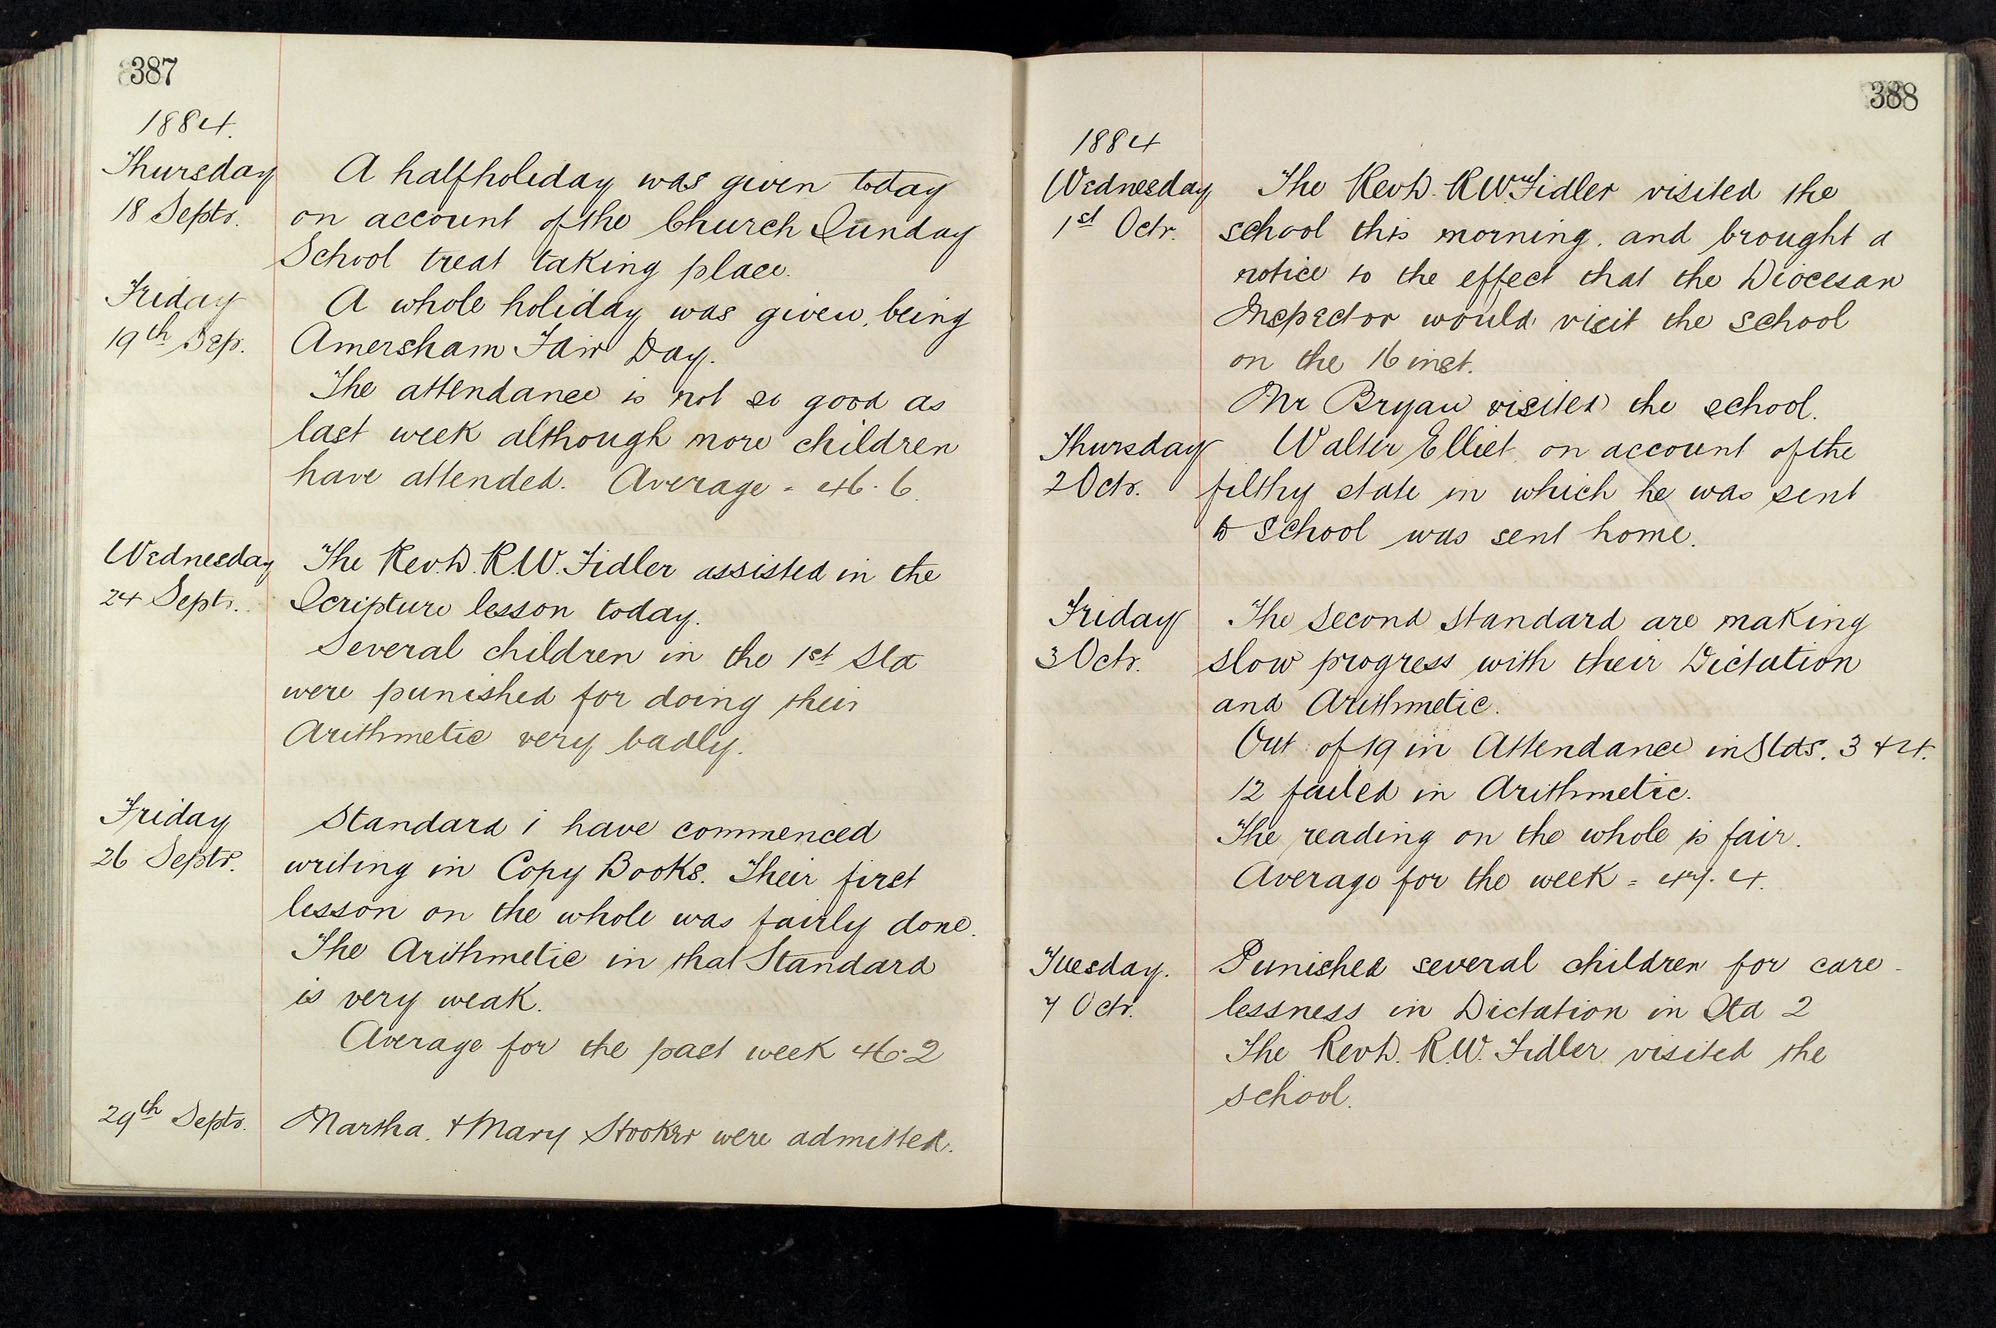 387
1884.
Thursday
18 Septr.
A halfholiday was given today
on account of the Church Sunday
School treat taking place.
Friday
19th Sep.
A whole holiday was given, being
Amersham Fair Day.
The attendance is not so good as
last week although more children
have attended. Average = 46.6.
Wednesday
24 Septr.
The Revd. R.W. Fidler assisted in the
Scripture lesson today.
Several children in the 1st Std
were punished for doing their
Arithmetic very badly.
Friday
26 Septr.
Standard i have commenced
writing in Copy Books. Their first
lesson on the whole was fairly done.
The Arithmetic in that Standard
is very weak.
Average for the past week 46.2
29th Septr.
Martha, & Mary Stooker were admitted.
388
1884
Wednesday
1st Octr.
The Revd. R.W. Fidler visited the
school this morning, and brought a
notice to the effect that the Diocesan
Inspector would visit the school
on the 16 inst.
Mr Bryan visited the school.
Thursday
2 Octr.
Walter Elliet, on account of the
filthy state in which he was sent
to School was sent home.
Friday
3 Octr.
The Second Standard are making
slow progress with their Dictation
and Arithmetic.
Out of 19 in Attendance in Stds. 3 & 4.
12 failed in Arithmetic.
The reading on the whole is fair.
Average for the week = 47.4.
Tuesday.
7 Octr.
Punished several children for care-
lessness in Dictation in Std 2
The Revd. R.W. Fidler visited the
school.